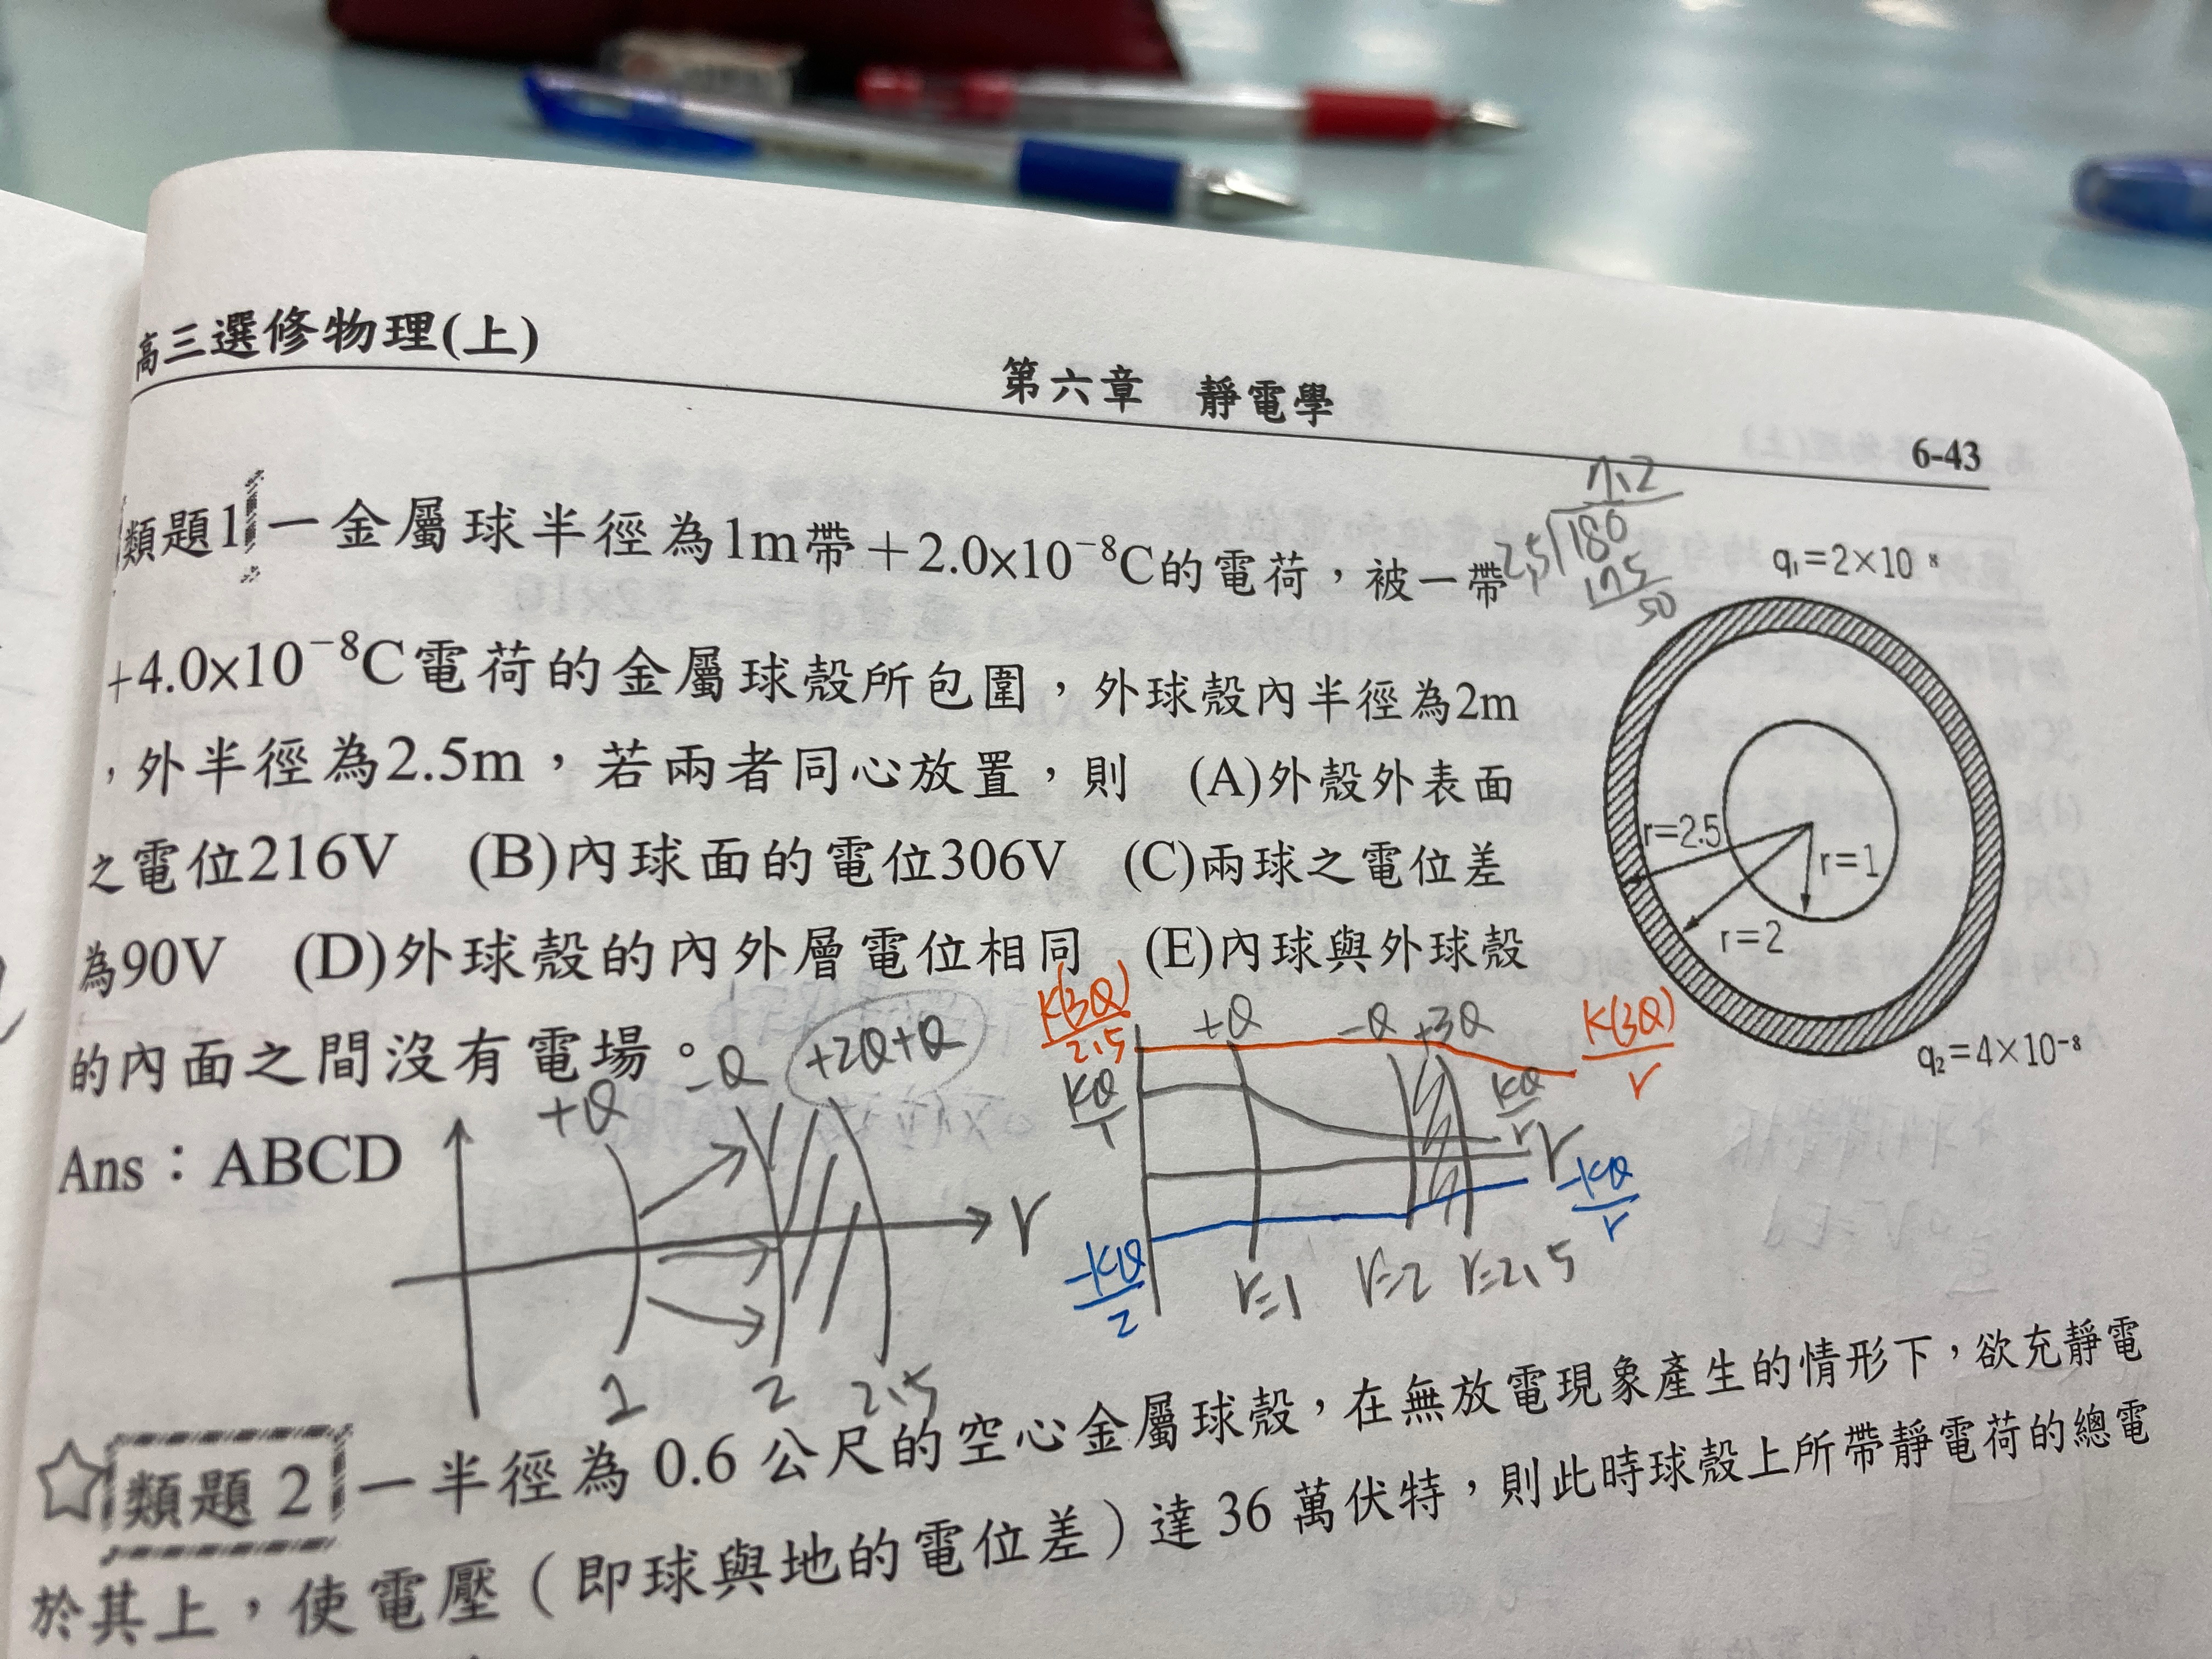 高三選修物理(上)
第六章 靜電學
6-43
類題1 一金屬球半徑為1m帶+2.0×10⁻⁸C的電荷，被一帶
+4.0×10⁻⁸C電荷的金屬球殼所包圍，外球殼內半徑為2m
，外半徑為2.5m，若兩者同心放置，則 (A)外殼外表面
之電位216V (B)內球面的電位306V (C)兩球之電位差
為90V (D)外球殼的內外層電位相同 (E)內球與外球殼
的內面之間沒有電場。
Ans：ABCD
7.2
2.5 180
175
50
q₁=2×10⁻⁸
r=2.5
r=1
r=2
q₂=4×10⁻⁸
+Q -Q +2Q+Q
r
1 2 2.5
K(3Q)/2.5
+Q -Q +3Q
K(3Q)/r
KQ/1
KQ/r
r
-KQ/2
-KQ/r
r=1 r=2 r=2.5
類題 2 一半徑為 0.6 公尺的空心金屬球殼，在無放電現象產生的情形下，欲充靜電
於其上，使電壓（即球與地的電位差）達 36 萬伏特，則此時球殼上所帶靜電荷的總電